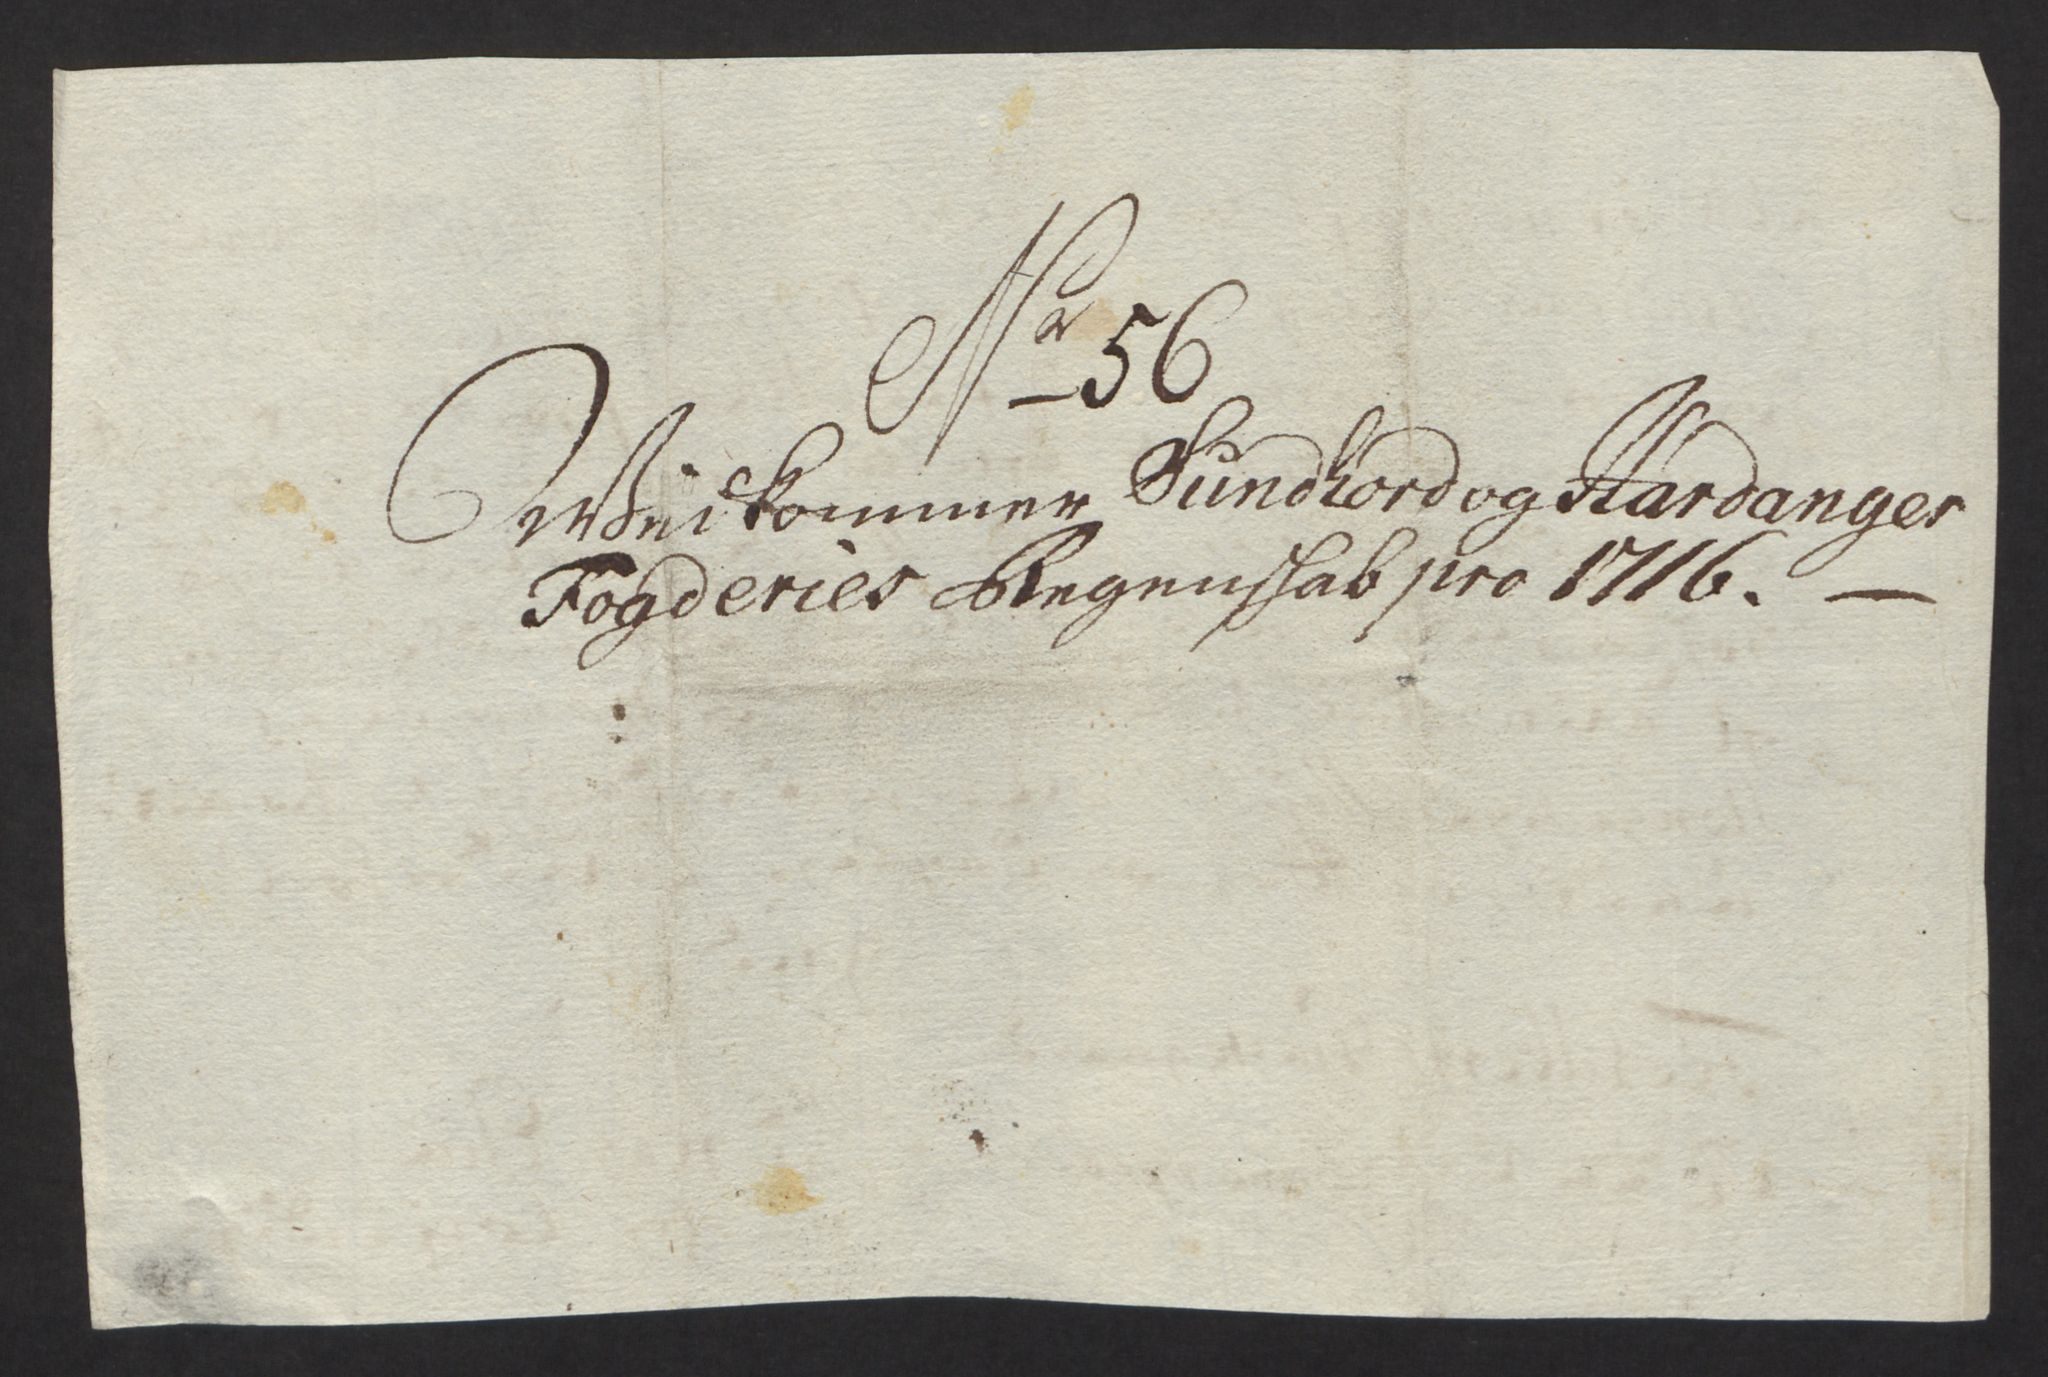 No 56
Wedkommer Sundhord og Hardanger
Fogderies Regenskab pro 1716. —